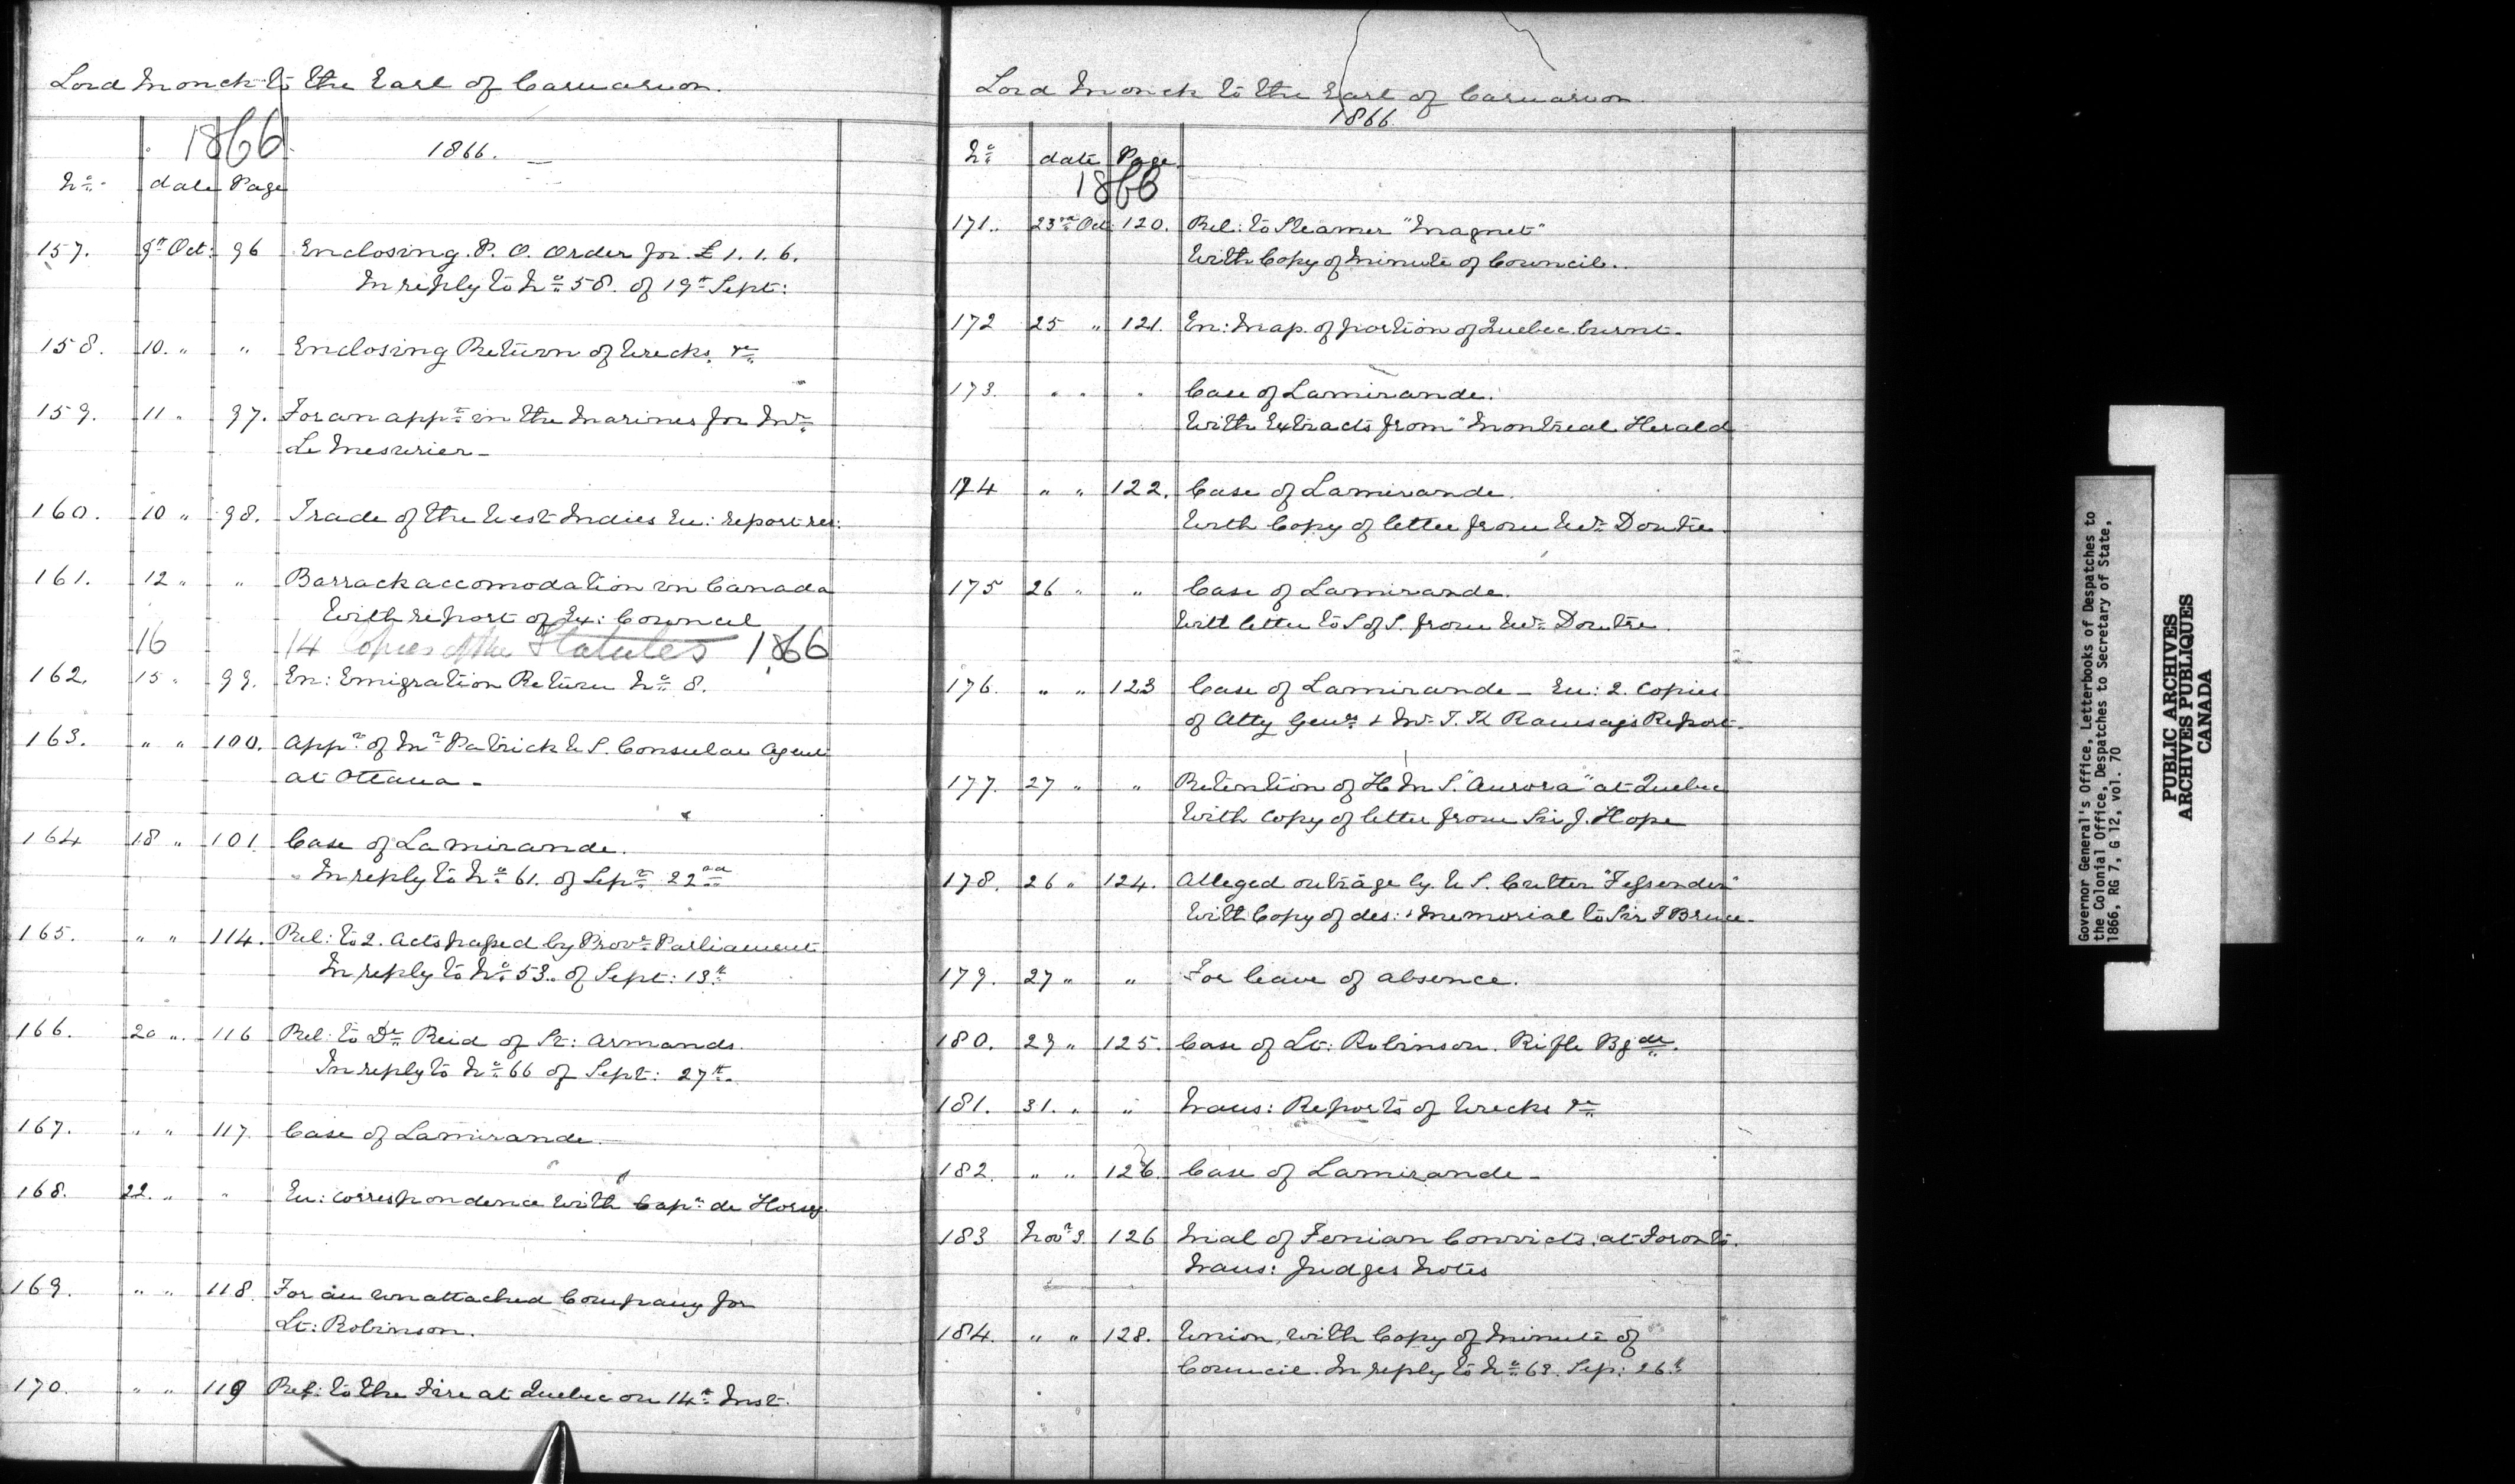 Lord Monck to the Earl of Carnarvon.
1866
1866.
No. date Page
157. 9th Oct: 96 Enclosing P. O. Order for £1. 1. 6.
In reply to No 58. of 19th Sept:
158. 10. " " Enclosing Return of Wrecks &c
159. 11 " 97. For an appt in the Marines for Mr
Le Mesurier -
160. 10 " 98. Trade of the West Indies En: report res:
161. 12 " " Barrack accomodation in Canada
With report of Ex: Council
16 14 Copies of the Statutes 1866
162. 15 " 99. En: Emigration Return No 8.
163. " " 100. Appt of Mr Patrick U S. Consular Agent
at Ottawa -
164 18 " 101 Case of Lamirande.
In reply to No 61. of Sept 22nd
165. " " 114. Rel: to 2. Acts passed by Provl Parliament
In reply to No 53. of Sept: 13th
166. 20 " 116 Rel: to Dr Reid of St: Armands.
In reply to No 66 of Sept: 27th
167. " " 117. Case of Lamirande.
168. 22. " " En: correspondence with Capn de Horsey.
169. " " 118. For an unattached Company for
Lt: Robinson.
170. " " 119 Ref: to the Fire at Quebec on 14th Inst.
Lord Monck to the Earl of Carnarvon.
1866.
No date Page
1866
171. 23rd Oct 120. Rel: to Steamer "Magnet"
With Copy of Minute of Council.
172 25 " 121. En: Map. of portion of Quebec burnt.
173. " " " Case of Lamirande.
With Extracts from "Montreal Herald
174 " " 122. Case of Lamirande.
With Copy of letter from Mr Doutre.
175 26 " " Case of Lamirande.
With letter to S of S. from Mr Doutre.
176. " " 123 Case of Lamirande - En: 2. Copies
of Atty Genls & Mr T. K Ramsay's Report.
177. 27 " " Retention of H M S. "Aurora" at Quebec
With copy of letter from Sir J. Hope
178. 26 " 124. Alleged outrage by U S. Cutter "Fessenden"
With Copy of des: & Memorial to Sir F Bruce.
179. 27 " " For leave of absence.
180. 29 " 125. Case of Lt: Robinson. Rifle Bgde.
181. 31. " " Trans: Reports of Wrecks &c
182. " " 126. Case of Lamirande -
183 Novr 3. 126 Trial of Fenian Convicts, at Toronto.
Trans: Judges Notes
184. " " 128. Union, with Copy of Minute of
Council. In reply to No 63. Sep: 26th
Governor General's Office, Letterbooks of Despatches to
the Colonial Office, Despatches to Secretary of State,
1866, RG 7, G 12, vol. 70
PUBLIC ARCHIVES
ARCHIVES PUBLIQUES
CANADA